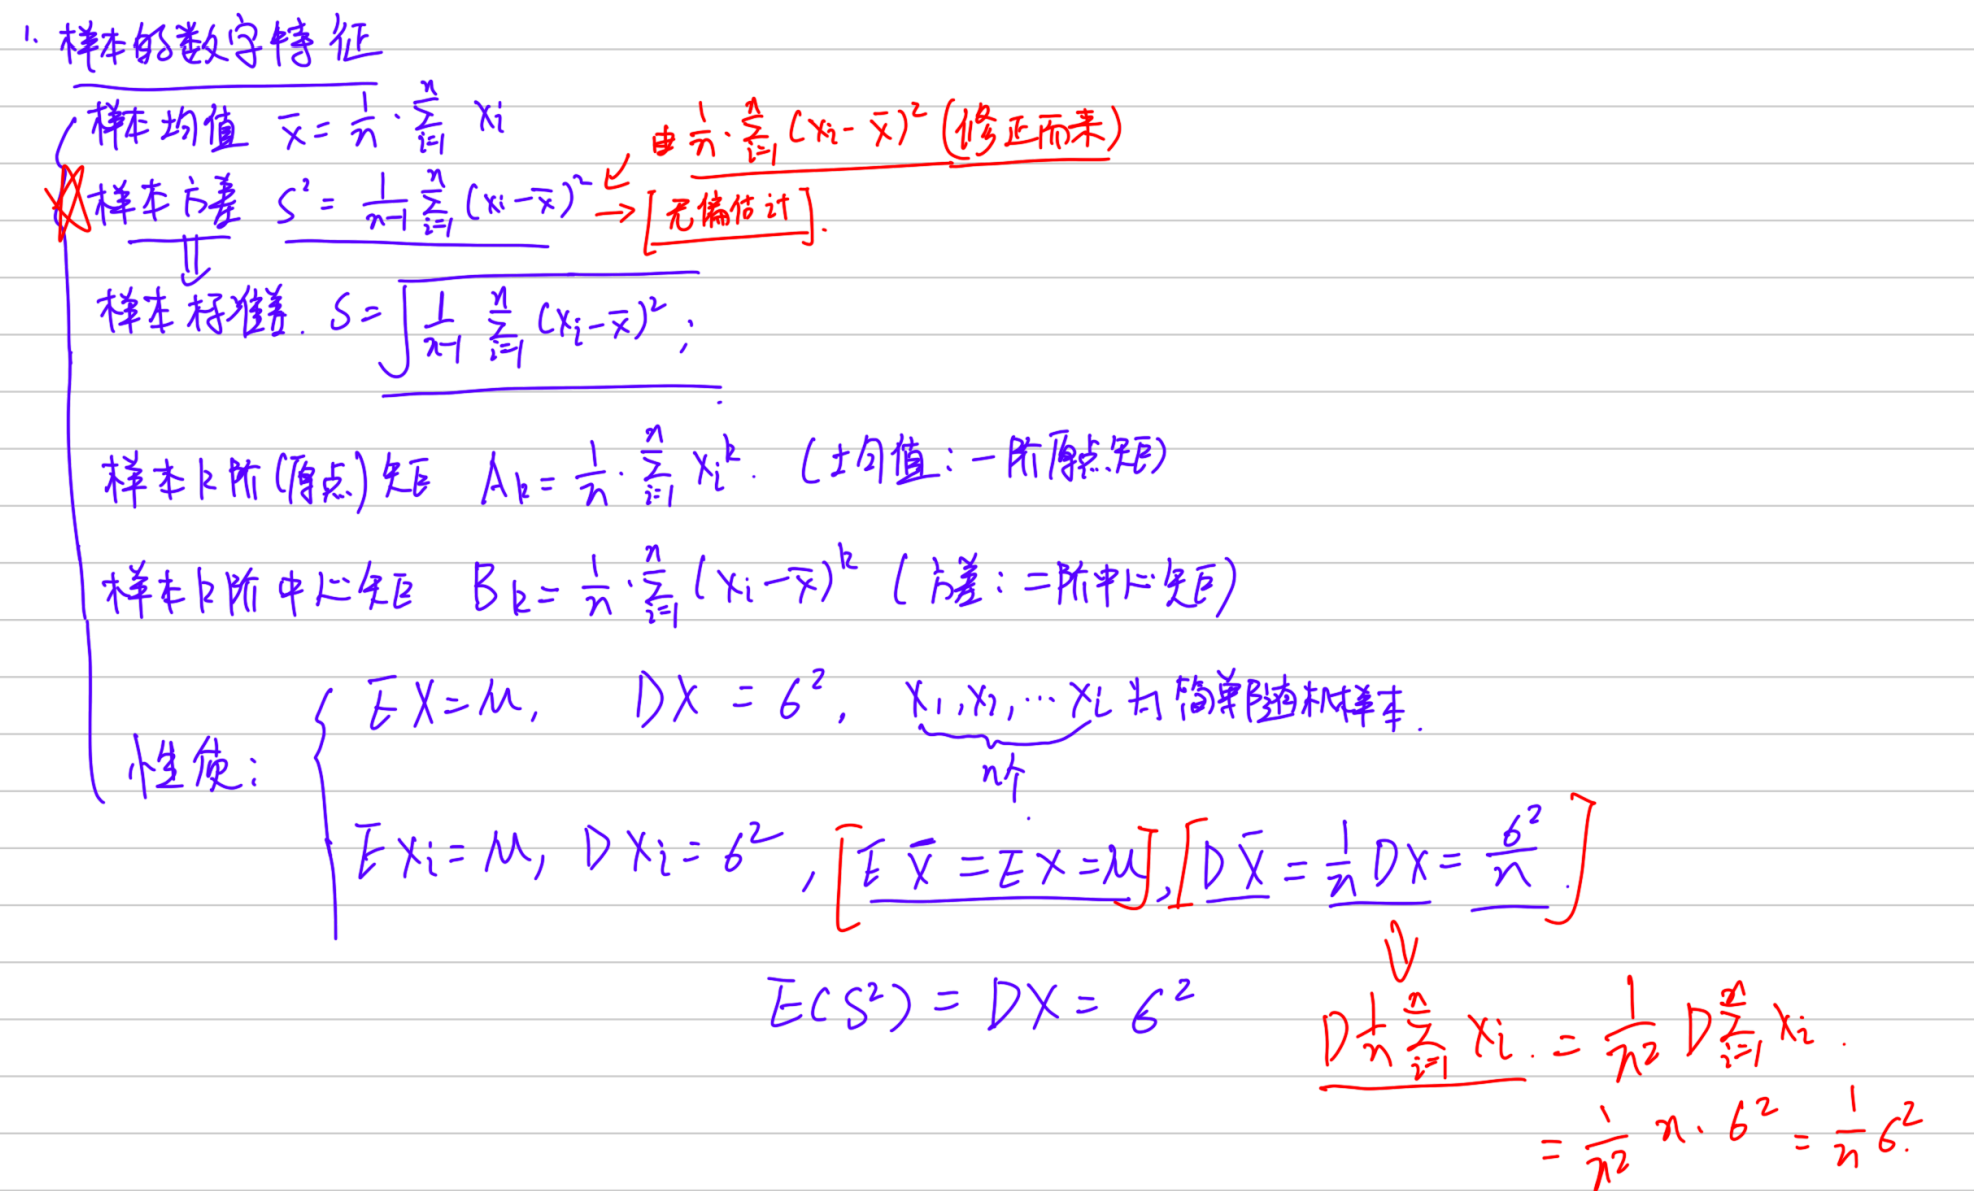 1. 样本的数字特征
样本均值 x̄ = 1/n · ∑_{i=1}^{n} xi
由 1/n · ∑_{i=1}^{n} (xi - x̄)² (修正而来)
样本方差 S² = 1/(n-1) ∑_{i=1}^{n} (xi - x̄)² → [无偏估计].
样本标准差. S = √(1/(n-1) ∑_{i=1}^{n} (xi - x̄)²) ;
样本k阶(原点)矩 Ak = 1/n · ∑_{i=1}^{n} xi^k. (均值: 一阶原点矩)
样本k阶中心矩 Bk = 1/n · ∑_{i=1}^{n} (xi - x̄)^k (方差: 二阶中心矩)
性质:
EX = μ, DX = σ², x1, x2, … xi 为简单随机样本.
n个
Exi = μ, Dxi = σ², [E x̄ = EX = μ], [D x̄ = 1/n DX = σ²/n.]
⇓
E(S²) = DX = σ²
D 1/n ∑_{i=1}^{n} xi. = 1/n² D ∑_{i=1}^{n} xi.
= 1/n² n · σ² = 1/n σ².